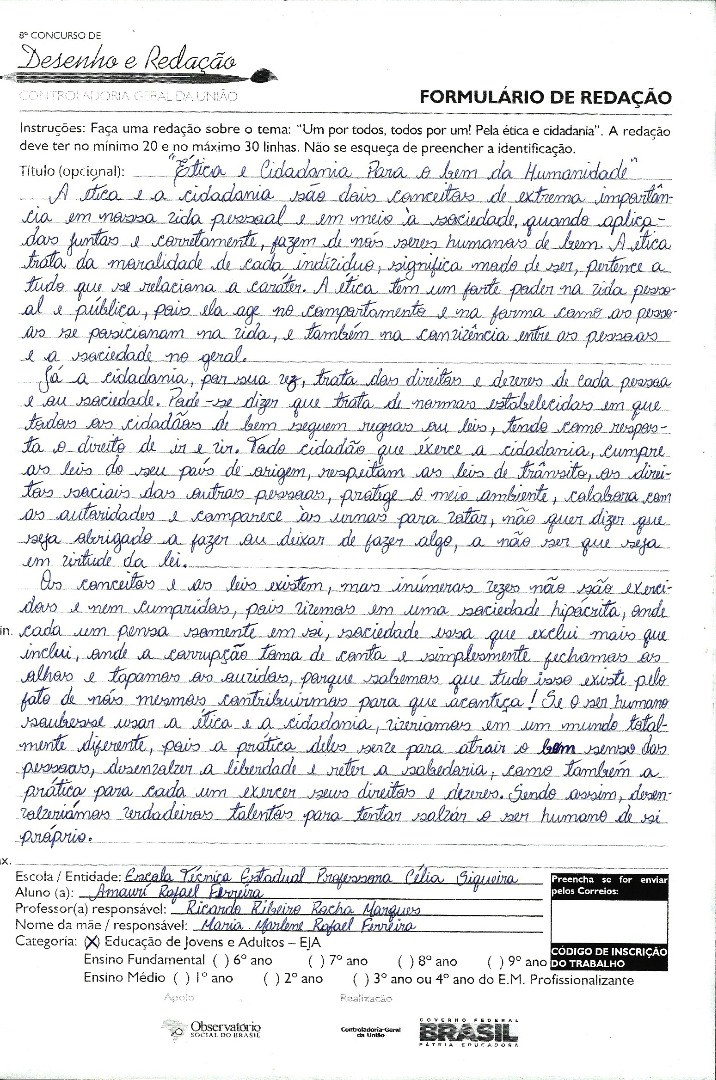 8º CONCURSO DE
Desenho e Redação
CONTROLADORIA GERAL DA UNIÃO
FORMULÁRIO DE REDAÇÃO
Instruções: Faça uma redação sobre o tema: "Um por todos, todos por um! Pela ética e cidadania". A redação
deve ter no mínimo 20 e no máximo 30 linhas. Não se esqueça de preencher a identificação.
Título (opcional): "Ética e Cidadania Para o bem da Humanidade"
A ética e a cidadania são dois conceitos de extrema importân-
cia em nossa vida pessoal e em meio à sociedade, quando aplica-
das juntas e corretamente, fazem de nós seres humanos de bem. A ética
trata da moralidade de cada indivíduo, significa modo de ser, pertence a
tudo que se relaciona a caráter. A ética tem um forte poder na vida pesso-
al e pública, pois ela age no comportamento e na forma como as pesso-
as se posicionam na vida, e também na convivência entre as pessoas
e a sociedade no geral.
Já a cidadania, por sua vez, trata dos direitos e deveres de cada pessoa
e ou sociedade. Pode-se dizer que trata de normas estabelecidas em que
todos os cidadãos de bem seguem regras ou leis, tendo como respos-
ta o direito de ir e vir. Todo cidadão que exerce a cidadania, cumpre
as leis do seu país de origem, respeitam as leis de trânsito, os direi-
tos sociais das outras pessoas, protege o meio ambiente, colabora com
as autoridades e comparece às urnas para votar, não quer dizer que
seja obrigado a fazer ou deixar de fazer algo, a não ser que seja
em virtude da lei.
Os conceitos e as leis existem, mas inúmeras vezes não são exerci-
dos e nem cumpridos, pois vivemos em uma sociedade hipócrita, onde
in. cada um pensa somente em si, sociedade essa que exclui mais que
inclui, onde a corrupção toma de conta e simplesmente fechamos os
olhos e tapamos os ouvidos, porque sabemos que tudo isso existe pelo
fato de nós mesmos contribuirmos para que aconteça! Se o ser humano
soubesse usar a ética e a cidadania, viveríamos em um mundo total-
mente diferente, pois a prática deles serve para atrair o bom senso das
pessoas, desenvolver a liberdade e reter a sabedoria, como também a
prática para cada um exercer seus direitos e deveres. Sendo assim, desen-
volveríamos verdadeiros talentos para tentar salvar o ser humano de si
próprio.
x.
Escola / Entidade: Escola Técnica Estadual Professora Célia Siqueira
Aluno (a): Amauri Rafael Ferreira
Professor(a) responsável: Ricardo Ribeiro Rocha Marques
Nome da mãe / responsável: Maria Marlene Rafael Ferreira
Preencha se for enviar
pelos Correios:
CÓDIGO DE INSCRIÇÃO
DO TRABALHO
Categoria: (X) Educação de Jovens e Adultos – EJA
Ensino Fundamental ( ) 6º ano ( ) 7º ano ( ) 8º ano ( ) 9º ano
Ensino Médio ( ) 1º ano ( ) 2º ano ( ) 3º ano ou 4º ano do E.M. Profissionalizante
Apoio
Realização
Observatório
SOCIAL DO BRASIL
Controladoria-Geral
da União
GOVERNO FEDERAL
BRASIL
PÁTRIA EDUCADORA